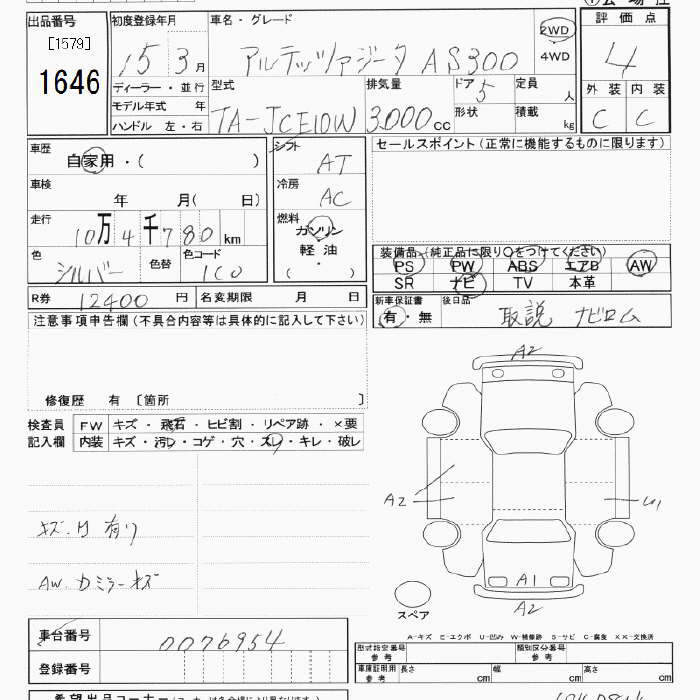 出品番号
[1579]
1646
初度登録年月
15 3 月
ディーラー・並行
モデル年式 年
ハンドル 左・右
車名・グレード
アルテッツァジータ AS300
2WD
4WD
型式
TA-JCE10W
排気量
3000 cc
ドア 5
形状
定員 人
積載 kg
評価点
4
外装 内装
C C
車歴
自家用・( )
車検
年 月( 日)
走行
10万4千780 km
色
シルバー
色替
色コード
1C0
シフト
AT
冷房
AC
燃料
ガソリン
軽油
・
( )
セールスポイント(正常に機能するものに限ります)
装備品(純正品に限り○をつけてください)
PS PW ABS エアB AW
SR ナビ TV 本革
R券 12400 円
名変期限 月 日
新車保証書
有・無
後日品
取説 ナビロム
注意事項申告欄(不具合内容等は具体的に記入して下さい)
修復歴 有 〔箇所 〕
検査員
記入欄
FW キズ・飛石・ヒビ割・リペア跡・×要
内装 キズ・汚レ・コゲ・穴・スレ・キレ・破レ
キズ.凹 有り
AW.Dミラーキズ
A2
A2
A1
A2
スペア
車台番号 0076954
登録番号
A-キズ E-エクボ U-凹み W-補修跡 S-サビ C-腐食 XX-交換済
型式指定番号
参考
類別区分番号
参考
車庫証明用
参考
長さ cm
幅 cm
高さ cm